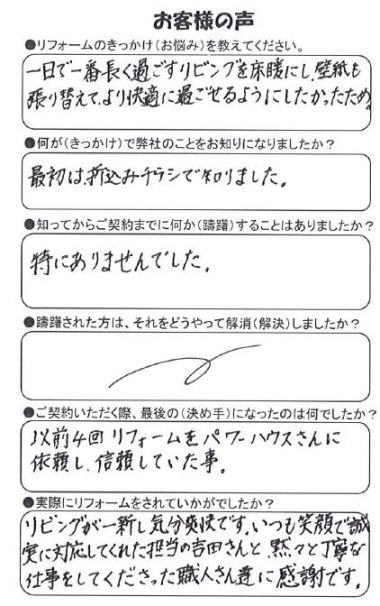 お客様の声
●リフォームのきっかけ(お悩み)を教えてください。
一日で一番長く過ごすリビングを床暖にし、壁紙も
張り替えて、より快適に過ごせるようにしたかったため。
●何が(きっかけ)で弊社のことをお知りになりましたか？
最初は、折込みチラシで知りました。
●知ってからご契約までに何か(躊躇)することはありましたか？
特にありませんでした。
●躊躇された方は、それをどうやって解消(解決)しましたか？
●ご契約いただく際、最後の(決め手)になったのは何でしたか？
以前4回リフォームをパワーハウスさんに
依頼し、信頼していた事。
●実際にリフォームをされていかがでしたか？
リビングが一新し気分爽快です。いつも笑顔で誠
実に対応してくれた担当の吉田さんと、黙々と丁寧な
仕事をしてくださった職人さん達に感謝です。